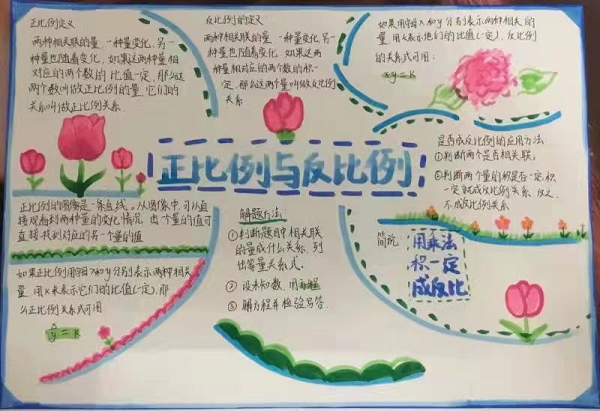 正比例定义
两种相关联的量,一种量变化,另一
种量也随着变化,如果这两种量相
对应的两个数的比值一定,那么这
两个数叫做正比例的量,它们的
关系叫做正比例关系
反比例的定义
两种相关联的量,一种量变化,另一
种量也随着变化,如果这两
种量相对应的两个数的积一
定,那么这两个量叫做反比例
关系
如果用字母x和y分别表示两种相关的
量,用k表示他们的比值(一定),反比例
的关系式可用:
xy=k
正比例与反比例
是否成反比例的应用方法
①判断两个是否相关联,
②判断两个量的积是否一定,积
一定就成反比例关系,反之,
不成反比例关系
正比例的图像是一条直线。从图象中,可以直
接观看到两种量的变化情况,由一个量的值可
直接找到对应的另一个量的值
解题方法:
①判断题目中相关联
的量成什么关系,列
出等量关系式.
② 设未知数,用
③ 解方程并检验写答.
简说:
用乘法
积一定
成反比
如果正比例用字母x和y分别表示两种相关
量,用k来表示它们的比值(一定),那
么正比例关系式可用
y = k